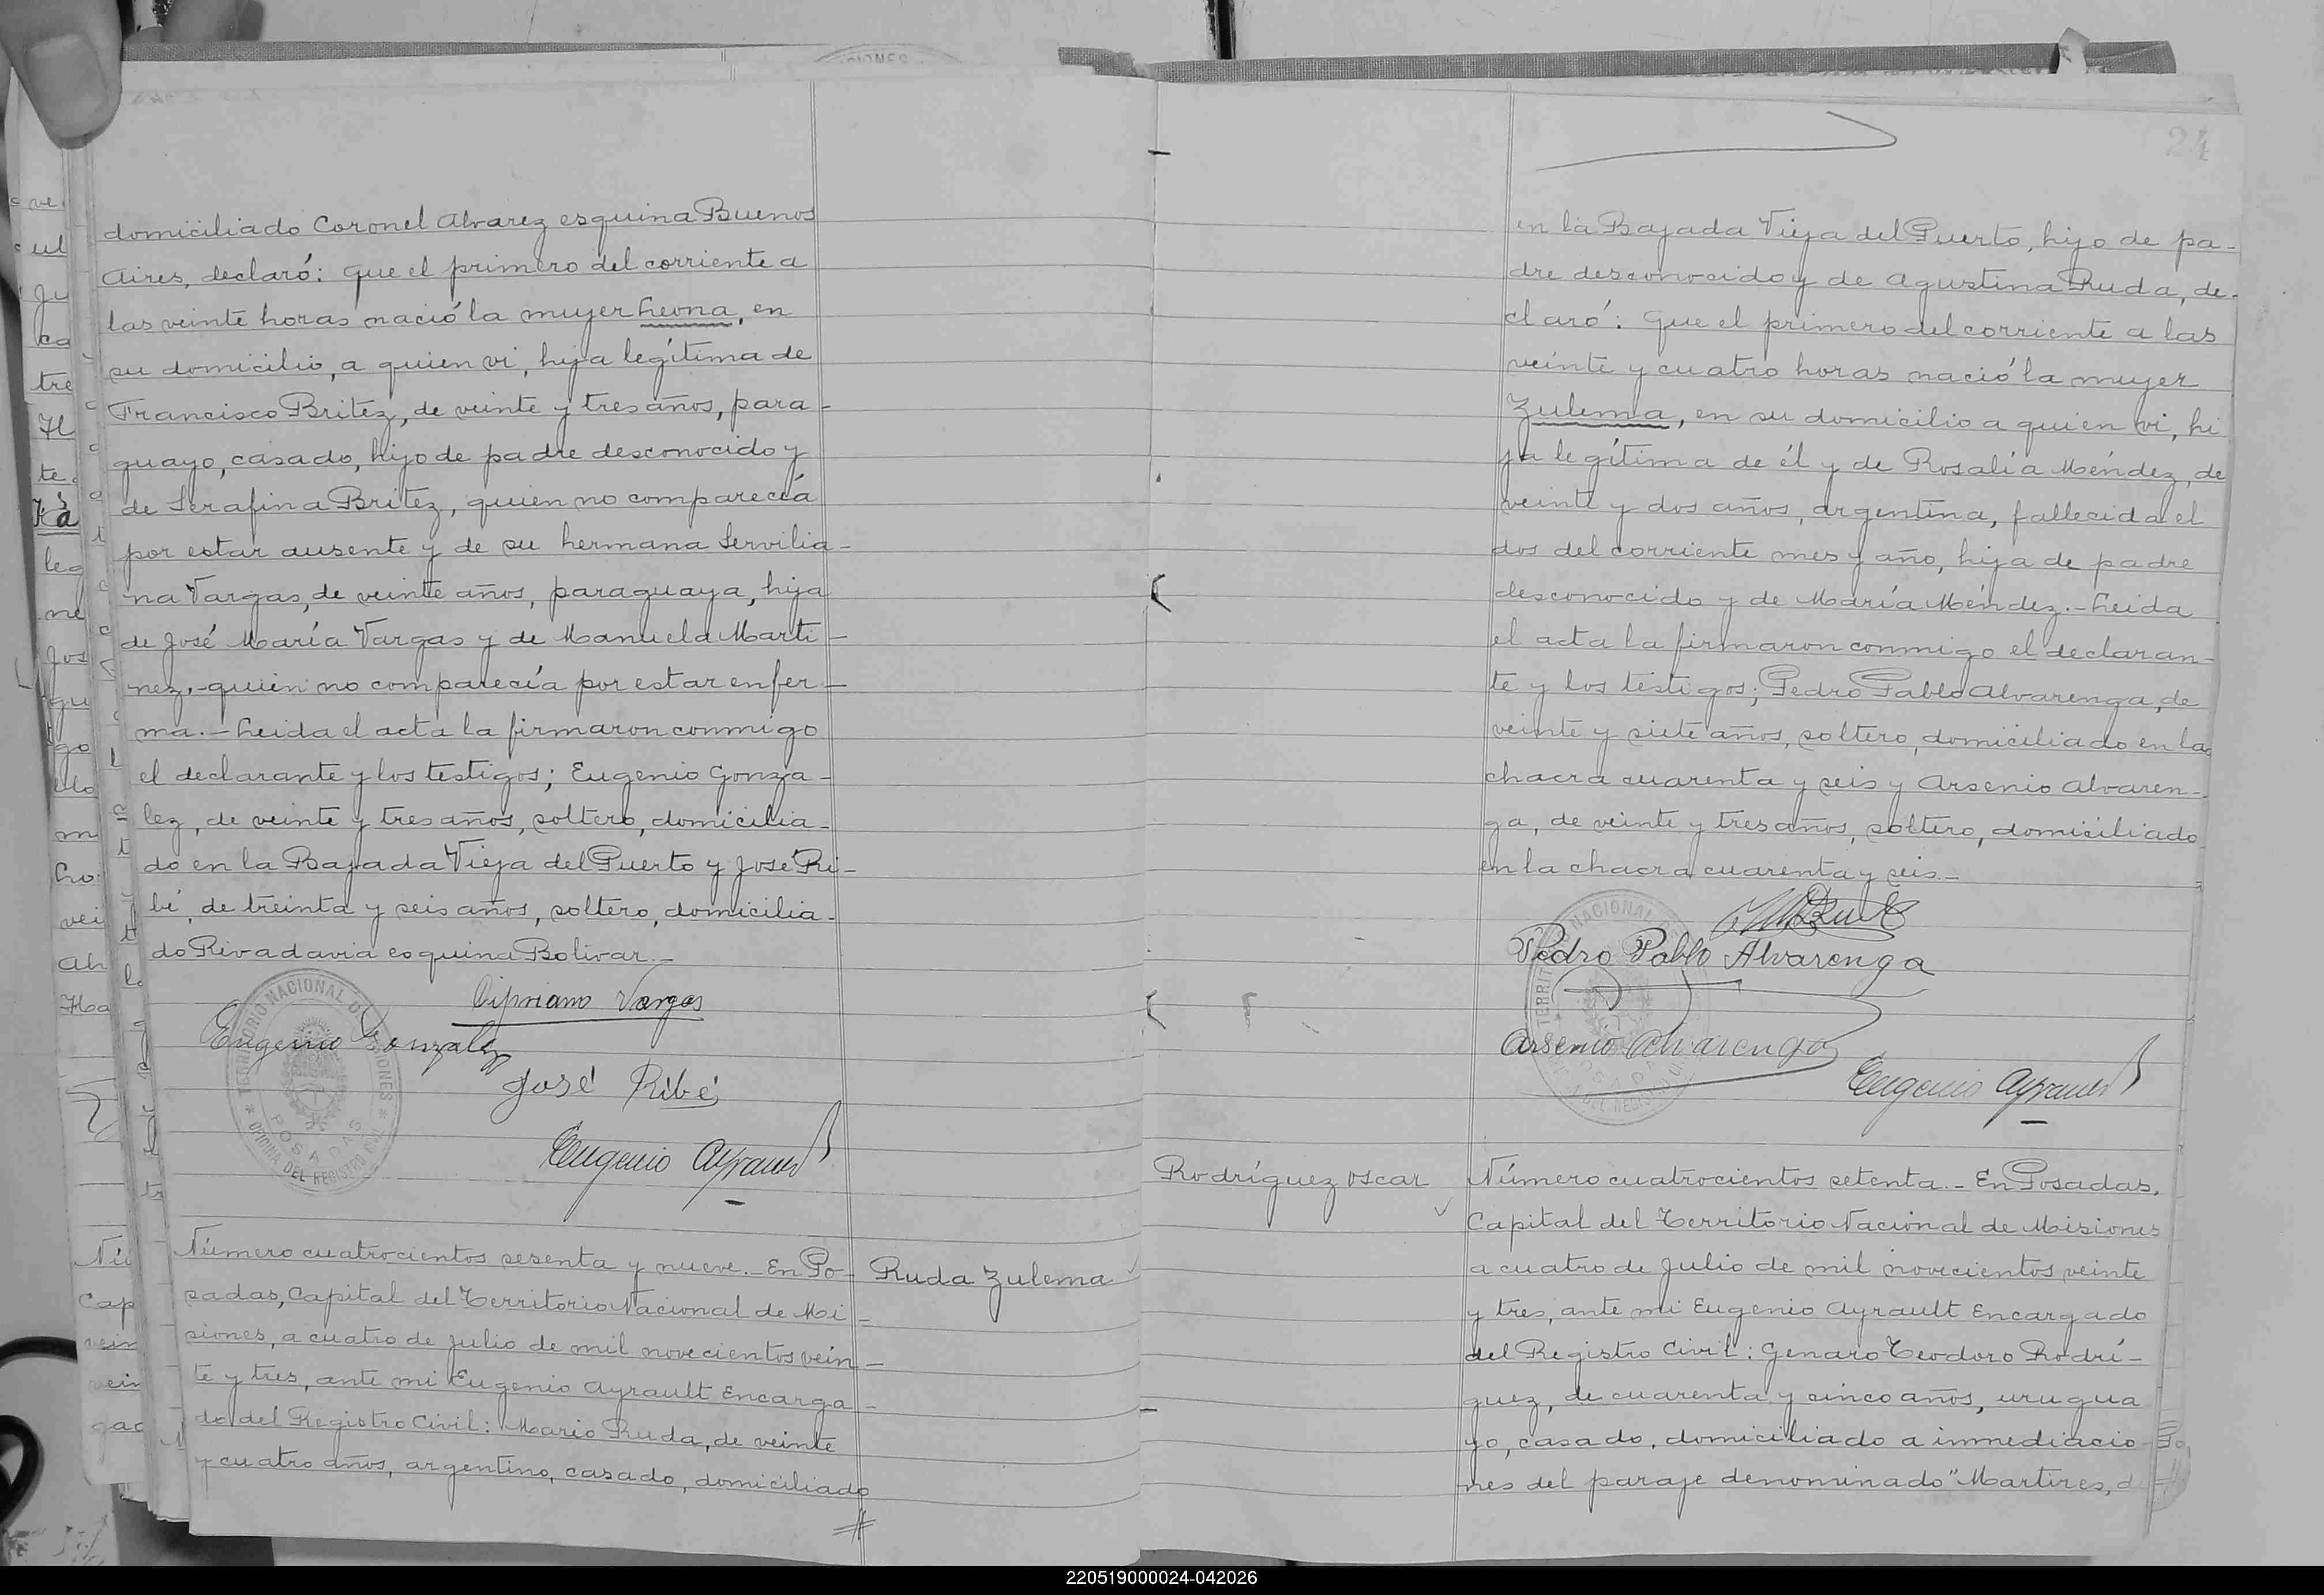 domiciliado Coronel Alvarez esquina Buenos
Aires, declaró: Que el primero del corriente a
las veinte horas nació la mujer Leona, en
su domicilio, a quien vi, hija legítima de
Francisco Britez, de veinte y tres años, para-
guayo, casado, hijo de padre desconocido y
de Serafina Britez, quien no comparecía
por estar ausente y de su hermana Servilia-
na Vargas, de veinte años, paraguaya, hija
de José María Vargas y de Manuela Marti-
nez,-quien no comparecía por estar enfer-
ma.- Leida el acta la firmaron conmigo
el declarante y los testigos; Eugenio Gonza-
lez, de veinte y tres años, soltero, domicilia-
do en la Bajada Vieja del Puerto y José Ri-
bé, de treinta y seis años, soltero, domicilia-
do Rivadavia esquina Bolivar.-
Cipriano Vargas
Eugenio Gonzalez
José Ribé
Eugenio Ayrault
TERRITORIO NACIONAL DE MISIONES
POSADAS
OFICINA DEL REGISTRO CIVIL
Ruda Zulema
Número cuatrocientos sesenta y nueve.- En Po-
sadas, Capital del Territorio Nacional de Mi-
siones, a cuatro de Julio de mil novecientos vein-
te y tres, ante mi Eugenio Ayrault Encarga-
do del Registro Civil: Mario Ruda, de veinte
y cuatro años, argentino, casado, domiciliado
24
en la Bajada Vieja del Puerto, hijo de pa-
dre desconocido y de Agustina Ruda, de-
claró: Que el primero del corriente a las
veinte y cuatro horas nació la mujer
Zulema, en su domicilio a quien vi, hi
ja legítima de él y de Rosalía Méndez, de
veinte y dos años, argentina, fallecida el
dos del corriente mes y año, hija de padre
desconocido y de María Méndez.- Leida
el acta la firmaron conmigo el declaran-
te y los testigos; Pedro Pablo Alvarenga, de
veinte y siete años, soltero, domiciliado en la
chacra cuarenta y seis y Arsenio Alvaren-
ga, de veinte y tres años, soltero, domiciliado
en la chacra cuarenta y seis.-
Pedro Pablo Alvarenga
Arsenio Alvarenga
Eugenio Ayrault
Rodríguez Oscar
Número cuatrocientos setenta.- En Posadas,
Capital del Territorio Nacional de Misiones
a cuatro de Julio de mil novecientos veinte
y tres, ante mi Eugenio Ayrault Encargado
del Registro Civil: Genaro Teodoro Rodrí-
guez, de cuarenta y cinco años, urugua
yo, casado, domiciliado a inmediacio-
nes del paraje denominado "Martires,
220519000024-042026